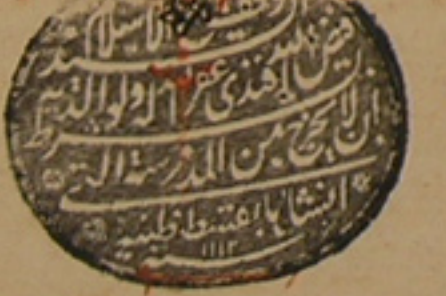 الاسلام السيد
فيض الله افندى غفر الله له ولوالديه
بشرط ان لا يخرج من المدرسة التى
انشاها بقسطنطينية
سنة ١١١٢